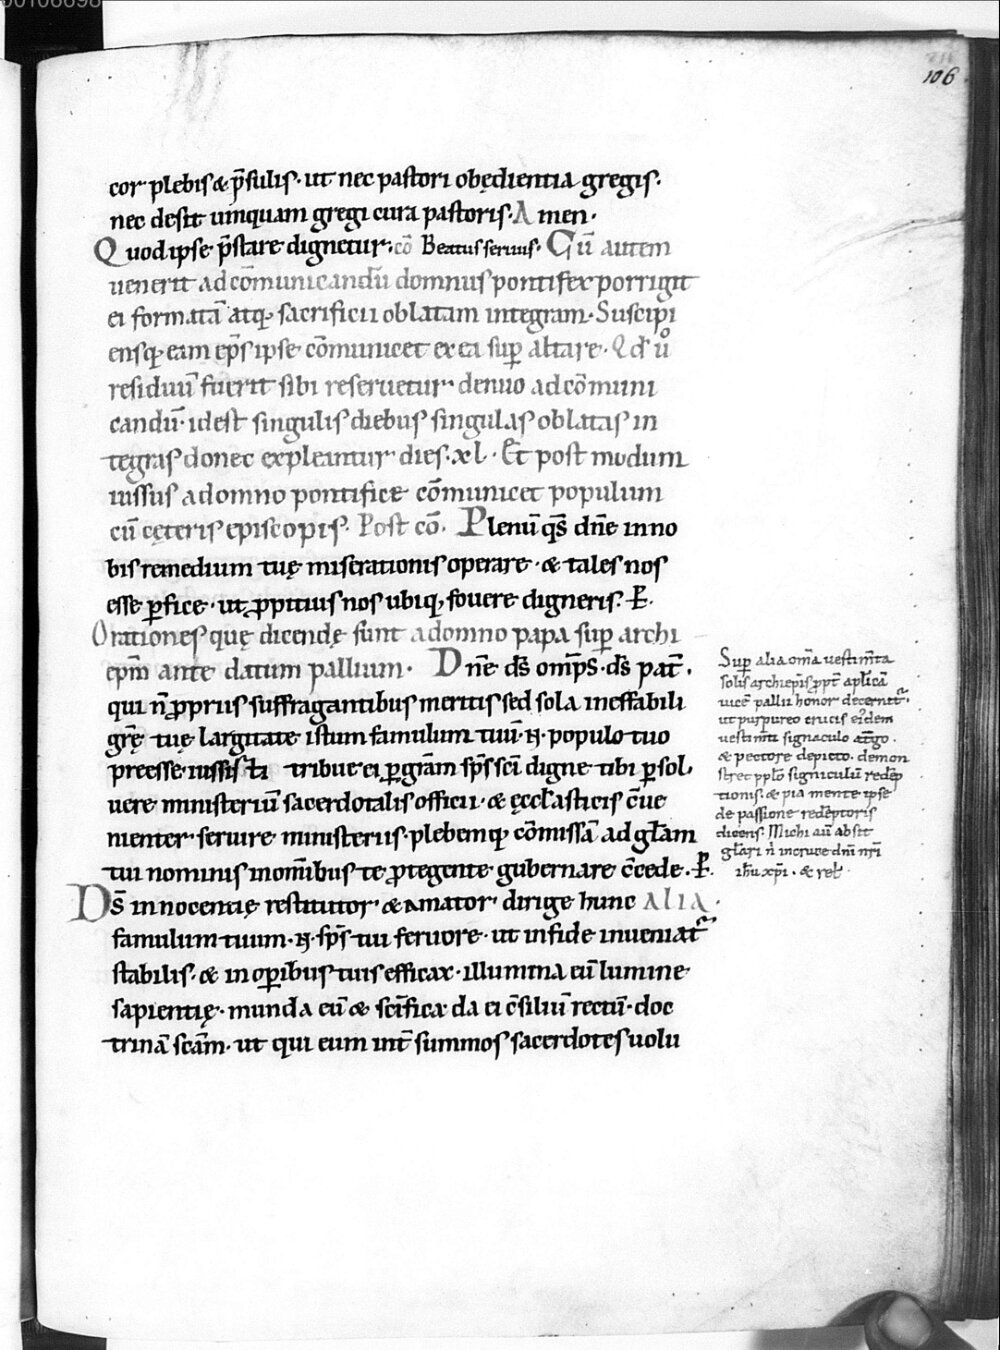 106
cor plebis & p̄sulis· ut nec pastori obędientia gregis·
nec desit umquam gregi cura pastoris· Amen·
Quod ipse p̄stare dignetur· cō Beatus seruus· Cū autem
uenerit ad cōmunicandū domnus pontifex porrigit
ei formatā atq· sacrificii oblatam integram· Suscipi
ensq· eam ep̄s ipse cōmunicet ex ea sup̄ altare· Qd̄ uͦ
residuū fuerit sibi reseruetur denuo ad cōmuni
candū· idest singulis diebus singulas oblatas in
tegras donec expleantur dies· xl· Et post modum
iussus a domno pontifice cōmunicet populum
cū cęteris episcopis· Post cō· Plenū qs̄ dn̄e in no
bis remedium tuę miserationis operare· & tales nos
esse ꝑfice· ut ꝓpitius nos ubiq, fouere digneris· P̄·
Orationes quę dicendę sunt a domno papa sup̄ archi
ep̄m ante datum pallium· Dn̄e ds̄ omp̄s· ds̄ pat̄·
qui n̄ ꝓpriis suffragantibus meritis sed sola ineffabili
gr̄ę tuę largitate istum famulum tuū· N· populo tuo
preesse iussisti tribue ei ꝑ gr̄am sp̄s sc̄i digne tibi ꝑsol
uere ministeriū sacerdotalis officii· & ęccl̄asticis c̄ue
nienter seruire ministeriis· plebemq· cōmissā ad gl̄am
tui nominis in om̄ibus te ꝓtegente gubernare c̄cede· P̄·
Ds̄ innocentię restitutor & amator dirige hunc ALIA·
famulum tuum· N· sp̄s tui feruore· ut in fide inueniat᷑
stabilis· & in oꝑibus tuis efficax· illumina eū lumine
sapientię· munda eū & sc̄ifica· da ei c̄siliū rectū· doc
trinā sc̄am· ut qui eum int̄ summos sacerdotes uolu
Sup̄ alia om̄a uestim̄ta
solis archiep̄is ꝓpt̄ aplicā
uicē pallii honor decernit᷑·
ut purpureo crucis eidem
uestim̄ti signaculo at̄go·
& pectore depicto· demon
stret pplō signiculū redēp
tionis· & pia mente ipse
de passione redēptoris
dicens· Michi aū absit
gl̄ari n̄ in cruce dn̄i nr̄i
ih̄u xp̄i· & rel̄·